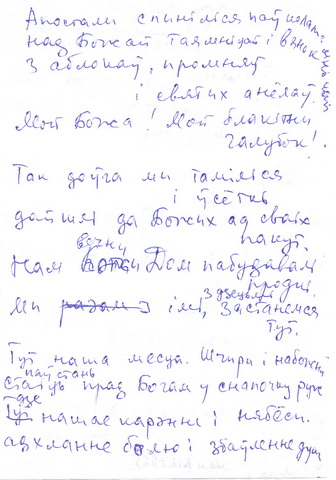 Апосталы спыніліся паўколам
над Божай таямніцай і вянок
з аблокаў, промняў
і святых анёлаў.
Мой Божа! Мой блакітны
галубок!
Так доўга мы таміліся
і ўсёткі
дайшлі да Божых ад сваіх
пакут.
вечны
Нам Дом пабудавалі
продкі.
з дзецьмі
Мы разам з імі, застанемся
тут.
Тут наша месца. Шчыры і набожны
паўстань
стаіць прад Богам у снапочку рук
дзе
Тут нашае карэнне і нябёсы.
ацхланне болю і збаўленне душ